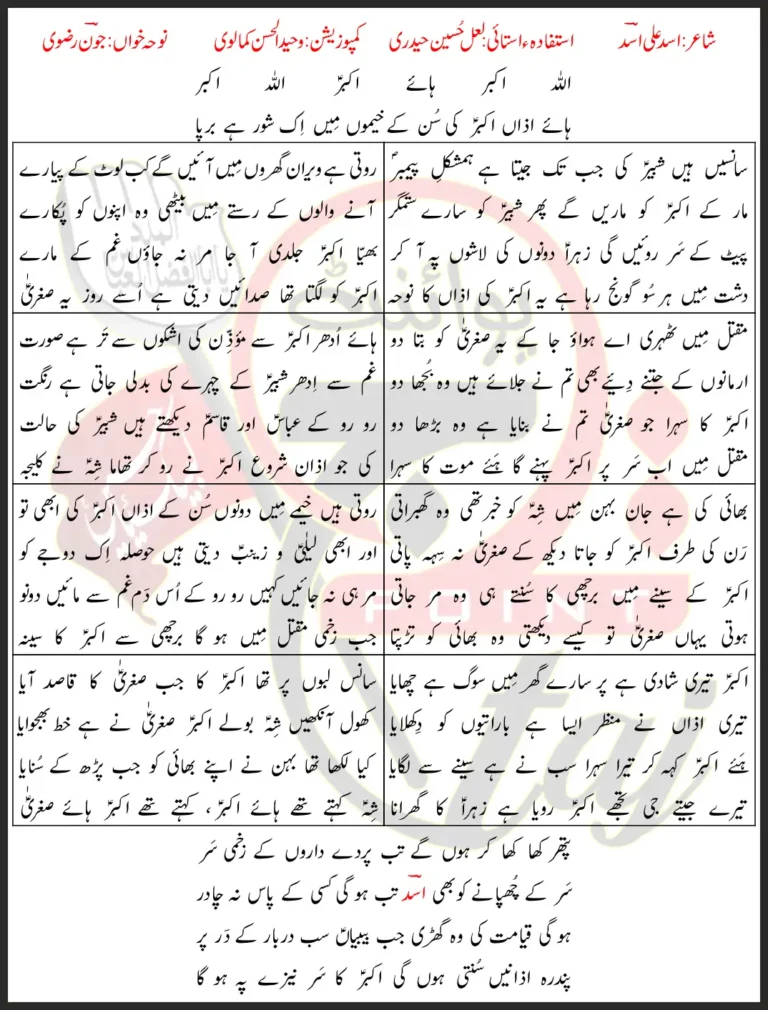 شاعر: اسد علی اسدؔ استفادہء استائی: لعل حُسین حیدری کمپوزیشن: وحید الحسن کمالوی نوحہ خواں: جونؔ رضوی
اللہ اکبر ہائے اکبرؑ اللہ اکبر
ہائے اذاں اکبرؑ کی سُن کے خیموں مِیں اِک شور ہے برپا
سانسیں ہیں شبیرؑ کی جب تک جیتا ہے ہمشکلِ پیمبرؐ
مار کے اکبرؑ کو ماریں گے پھر شبیرؑ کو سارے ستمگر
پیٹ کے سَر روئیں گی زہراؑ دونوں کی لاشوں پہ آ کر
دشت مِیں ہر سُو گونج رہا ہے یہ اکبرؑ کی اذاں کا نوحہ
روتی ہے ویران گھروں مِیں آئیں گے کب لوٹ کے پیارے
آنے والوں کے رستے مِیں بیٹھی وہ اپنوں کو پُکارے
بھیّا اکبرؑ جلدی آ جا مر نہ جاؤں غم کے مارے
اکبرؑ کو لگتا تھا صدائیں دیتی ہے اُسے روز یہ صغریٰؑ
مقتل مِیں ٹھہری اے ہواؤ جا کے یہ صغریٰؑ کو بتا دو
ارمانوں کے جتنے دِیئے بھی تم نے جلائے ہیں وہ بُجھا دو
اکبرؑ کا سہرا جو صغریٰؑ تم نے بنایا ہے وہ بڑھا دو
مقتل مِیں اب سَر پر اکبرؑ پہنے گا ہَئے موت کا سہرا
ہائے اُدھر اکبرؑ سے مؤذِّن کی اشکوں سے تَر ہے صورت
غم سے اِدھر شبیرؑ کے چہرے کی بدلی جاتی ہے رنگت
رو رو کے عباسؑ اور قاسمؑ دیکھتے ہیں شبیرؑ کی حالت
کی جو اذان شروع اکبرؑ نے رو کر تھاما شِہؑ نے کلیجہ
بھائی کی ہے جان بہن مِیں شِہؑ کو خبر تھی وہ گھبراتی
رَن کی طرف اکبرؑ کو جاتا دیکھ کے صغریٰؑ نہ سِہہ پاتی
اکبرؑ کے سینے مِیں برچھی کا سُنتے ہی وہ مر جاتی
ہوتی یہاں صغریٰؑ تو کیسے دیکھتی وہ بھائی کو تڑپتا
روتی ہیں خیمے مِیں دونوں سُن کے اذاں اکبرؑ کی ابھی تو
اور ابھی لیلیٰؑ و زینبؑ دیتی ہیں حوصلہ اِک دوجے کو
مر ہی نہ جائیں کہیں رو رو کے اُس دَم غم سے مائیں دونو
جب زخمی مقتل مِیں ہو گا برچھی سے اکبرؑ کا سینہ
اکبرؑ تیری شادی ہے پر سارے گھر مِیں سوگ ہے چھایا
تیری اذاں نے منظر ایسا ہے باراتیوں کو دِکھلایا
ہَئے اکبرؑ کہہ کر تیرا سہرا سب نے ہے سینے سے لگایا
تیرے جیتے جی تجھے اکبرؑ رویا ہے زہراؑ کا گھرانا
سانس لبوں پر تھا اکبرؑ کا جب صغریٰؑ کا قاصد آیا
کھول آنکھیں شِہؑ بولے اکبرؑ صغریٰؑ نے ہے خط بھجوایا
کیا لکھا تھا بہن نے اپنے بھائی کو جب پڑھ کے سُنایا
شِہؑ کہتے تھے ہائے اکبرؑ، کہتے تھے اکبرؑ ہائے صغریٰؑ
پتھر کھا کھا کر ہوں گے تب پردے داروں کے زخمی سَر
سَر کے چُھپانے کو بھی اسدؔ تب ہو گی کسی کے پاس نہ چادر
ہو گی قیامت کی وہ گھڑی جب بیبیاںؑ سب دربار کے دَر پر
پندرہ اذانیں سُنتی ہوں گی اکبرؑ کا سَر نیزے پہ ہو گا
پوائنٹ
POINT
taj